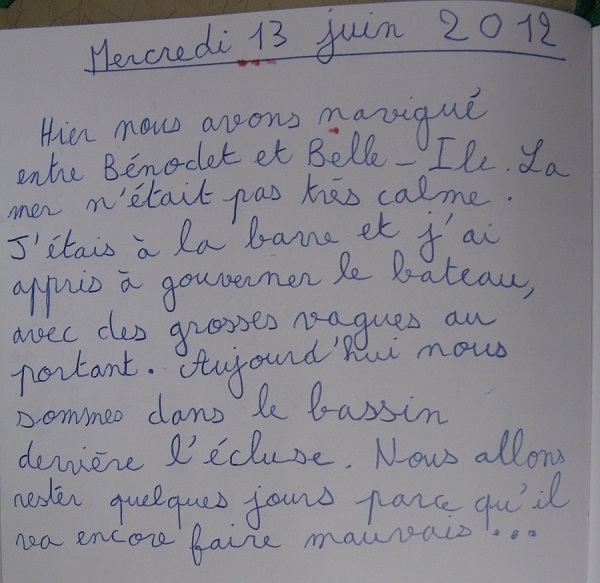 Mercredi 13 juin 2012
Hier nous avons navigué
entre Bénodet et Belle-Ile. La
mer n'était pas très calme.
J'étais à la barre et j'ai
appris à gouverner le bateau,
avec des grosses vagues au
portant. Aujourd'hui nous
sommes dans le bassin
derrière l'écluse. Nous allons
rester quelques jours parce qu'il
va encore faire mauvais...